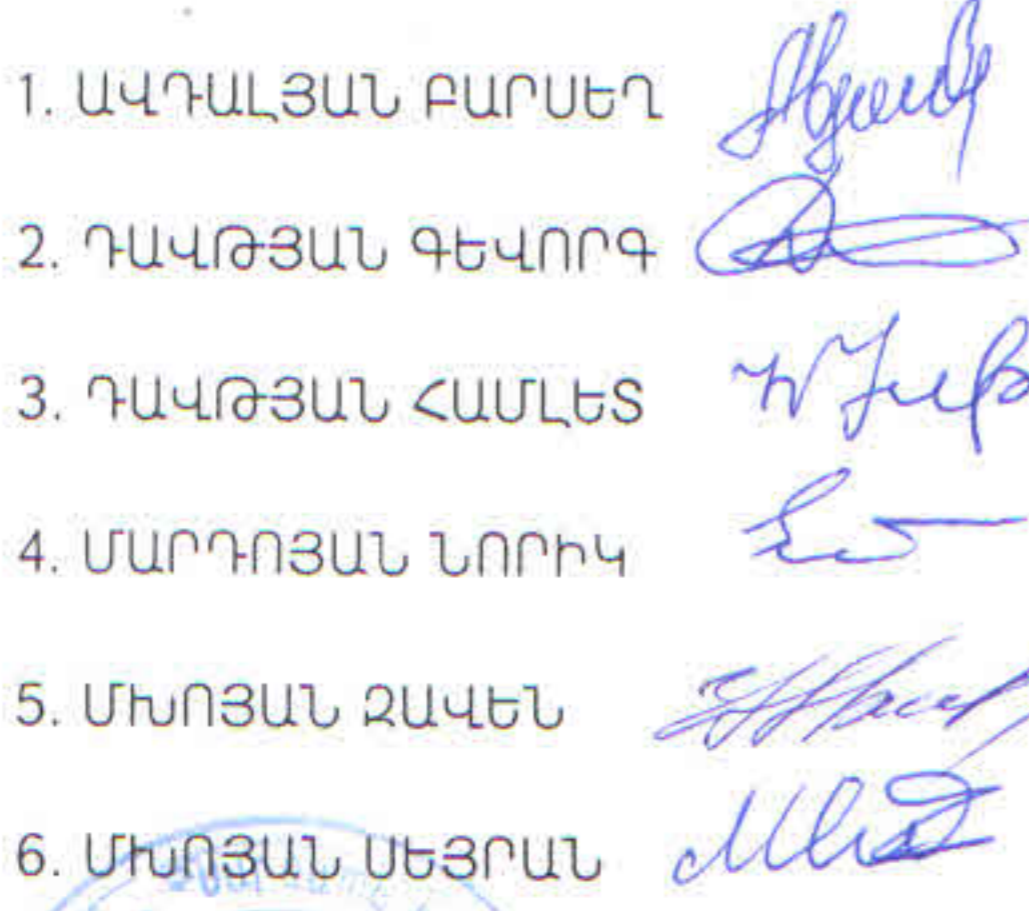 1. ԱՎԴԱԼՅԱՆ ԲԱՐՍԵՂ
2. ԴԱՎԹՅԱՆ ԳԵՎՈՐԳ
3. ԴԱՎԹՅԱՆ ՀԱՄԼԵՏ
4. ՄԱՐԴՈՅԱՆ ՆՈՐԻԿ
5. ՄԽՈՅԱՆ ԶԱՎԵՆ
6. ՄԽՈՅԱՆ ՍԵՅՐԱՆ